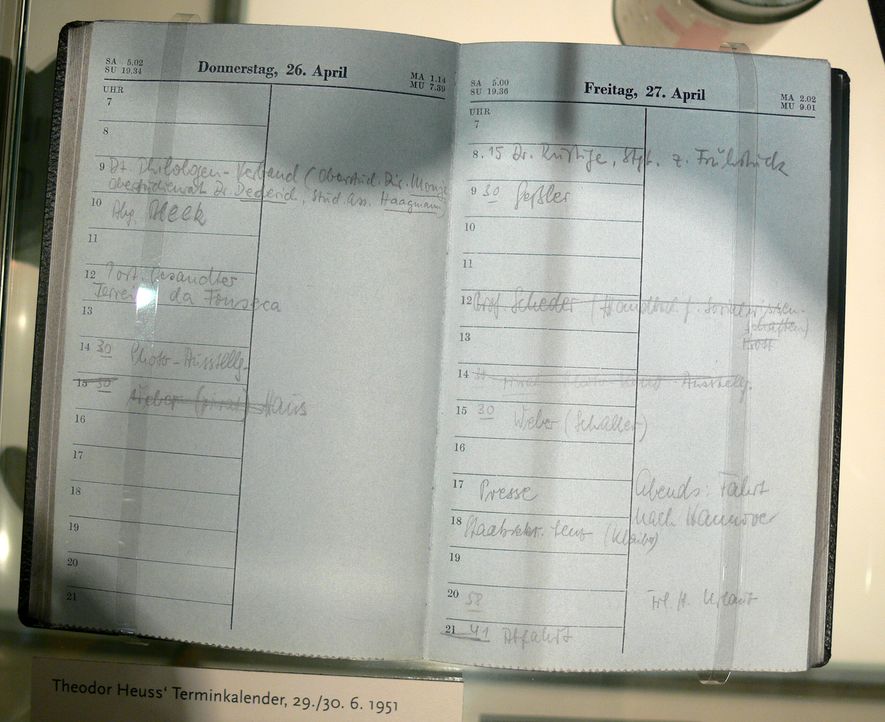 SA 5.02
SU 19.34
Donnerstag, 26. April
MA 1.14
MU 7.39
UHR
7
8
9 Dt. Philologen-Verband (Oberstud. Dir.
Oberstudienrat Dr Dederich, Stud. Ass. Haagmann)
10 Abg. Bleek
11
12 Port. Gesandter
da Fonseca
13
14 30 Photo-Ausstellg.
15 30
Weber (privat) Haus
16
17
18
19
20
21
SA 5.00
SU 19.36
Freitag, 27. April
MA 2.02
MU 9.01
UHR
7
8.15 Dr. Rustige, Stgt. z. Frühstück
9 30 Geßler
10
11
12 Prof. Scheder (Handbuch f. Sozialwissen-
schaften)
13
14 Ausstellg.
15 30 Weber (Schaller)
16
17 Presse
Abends: Fahrt
nach Hannover
18 Staatssekr. Lenz (Klaiber)
19
20 58
Urlaub
21 41 Abfahrt
Theodor Heuss' Terminkalender, 29./30. 6. 1951